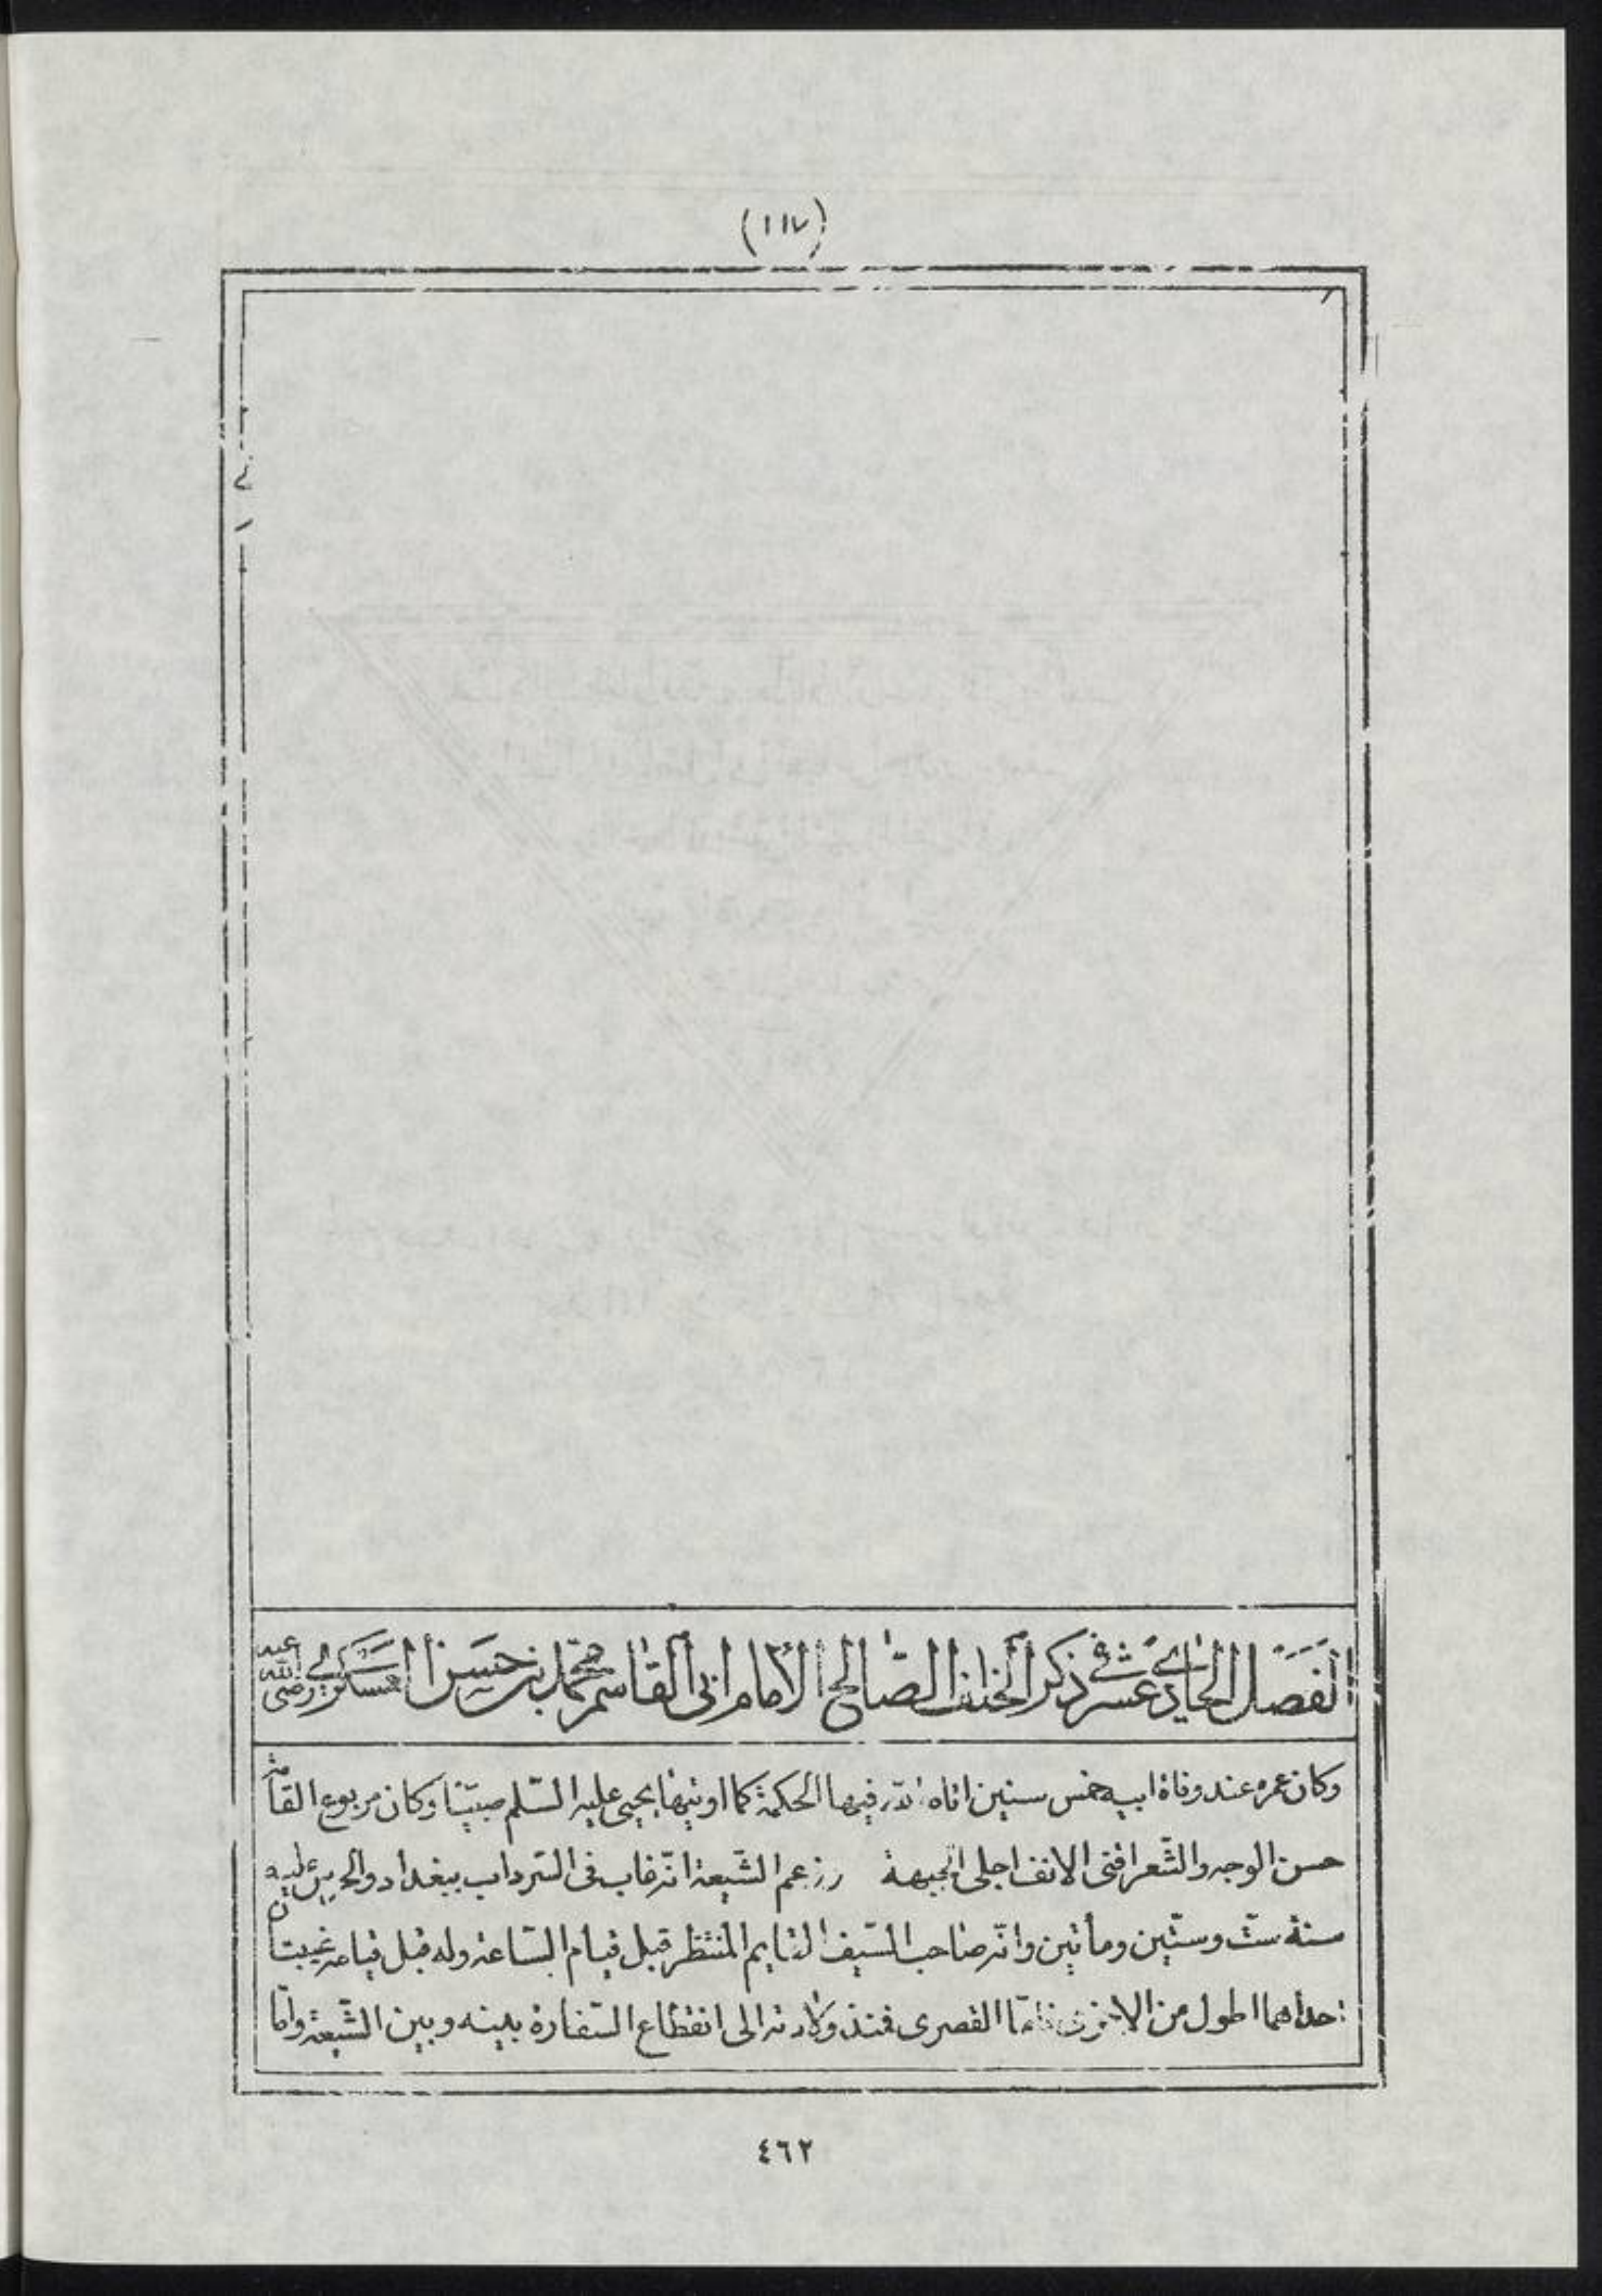 (١١٧)
الفصل الحادي عشر في ذكر الخلف الصالح الامام ابي القاسم محمد بن حسن العسكري رضى الله عنه
وكان عمره عند وفاة ابيه خمس سنين اتاه الله فيها الحكمة كما اوتيها يحيى عليه السّلم صبيّا وكان مربوع القامة
حسن الوجه والشّعر اقنى الانف اجلى الجبهة وزعم الشّيعة انّه غاب في السّرداب ببغداد والحرس عليه
سنة ستّ وستّين ومأتين وانّه صاحب السّيف القايم المنتظر قبل قيام السّاعة وله قبل قيامه غيبتان
احداهما اطول من الاخرى فامّا القصرى فمنذ ولادته الى انقطاع السّفارة بينه وبين الشّيعة وامّا
٤٦٢